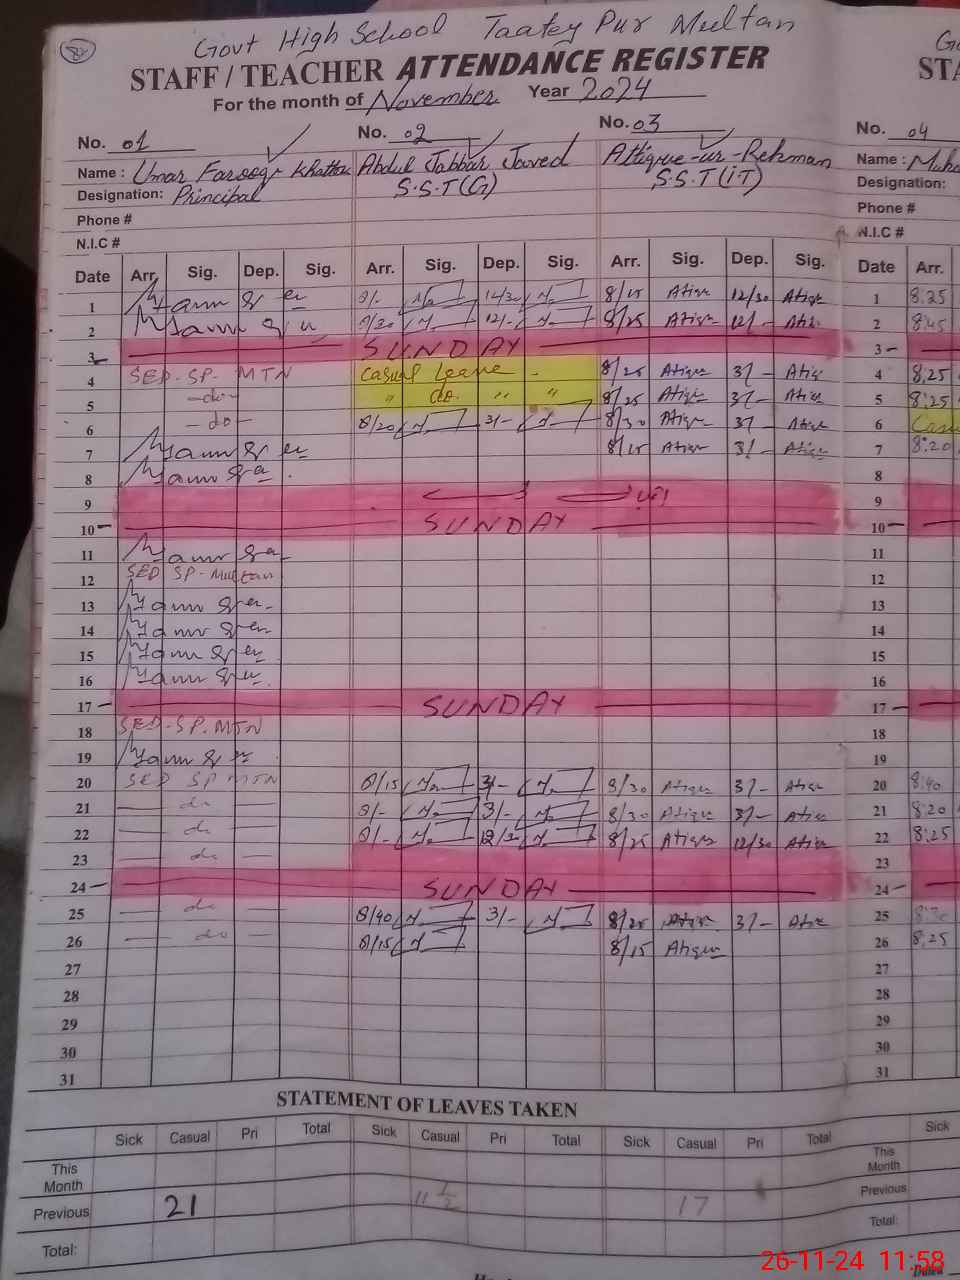 Govt High School Taatey Pur Multan
STAFF / TEACHER ATTENDANCE REGISTER
For the month of November Year 2024
No. 01 No. 02 No. 03 No. 04
Name : Umar Farooq Khattak Abdul Jabbar Javed Attique-ur-Rehman Name :
Designation: Principal S.S.T(G) S.S.T(iT) Designation:
Phone # Phone #
N.I.C # N.I.C #
Date Arr. Sig. Dep. Sig. Arr. Sig. Dep. Sig. Arr. Sig. Dep. Sig. Date Arr.
1 8/- 12/30 8/15 Atiqe 12/30 Atiqe 1 8:25
2 8/20 12/- 8/25 Atiqe 12/- Atiqe 2 8:45
3 SUNDAY 3
4 SED-SP-MTN Casual Leave - 8/25 Atiqe 3/- Atiqe 4 8:25
5 -do- " do " " 8/25 Atiqe 3/- Atiqe 5 8:25
6 -do- 8/20 3/- 8/30 Atiqe 3/- Atiqe 6
7 8/15 Atiqe 3/- Atiqe 7 8:20
8 8
9 9
10 SUNDAY 10
11 11
12 SED SP-Multan 12
13 13
14 14
15 15
16 16
17 SUNDAY 17
18 SED-SP.MTN 18
19 19
20 SED SP MTN 8/15 3/- 8/30 Atiqe 3/- Atiqe 20 8:40
21 — do — 8/- 3/- 8/30 Atiqe 3/- Atiqe 21 8:20
22 — do — 8/- 12/30 8/25 Atiqe 12/30 Atiqe 22 8:25
23 — do — 23
24 SUNDAY 24
25 — do — 8/40 3/- 8/25 Atiqe 3/- Atiqe 25 8:30
26 — do — 8/15 8/15 Atiqe 26 8:25
27 27
28 28
29 29
30 30
31 31
STATEMENT OF LEAVES TAKEN
Sick Casual Pri Total Sick Casual Pri Total Sick Casual Pri Total Sick
This Month This Month
Previous 21 11 1/2 17 Previous
Total: Total:
26-11-24 11:58